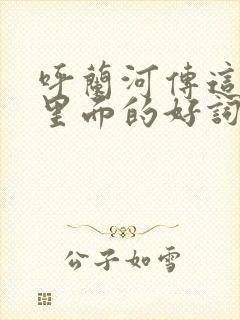 呼蘭河傳這
里面的好詞
公子如雪